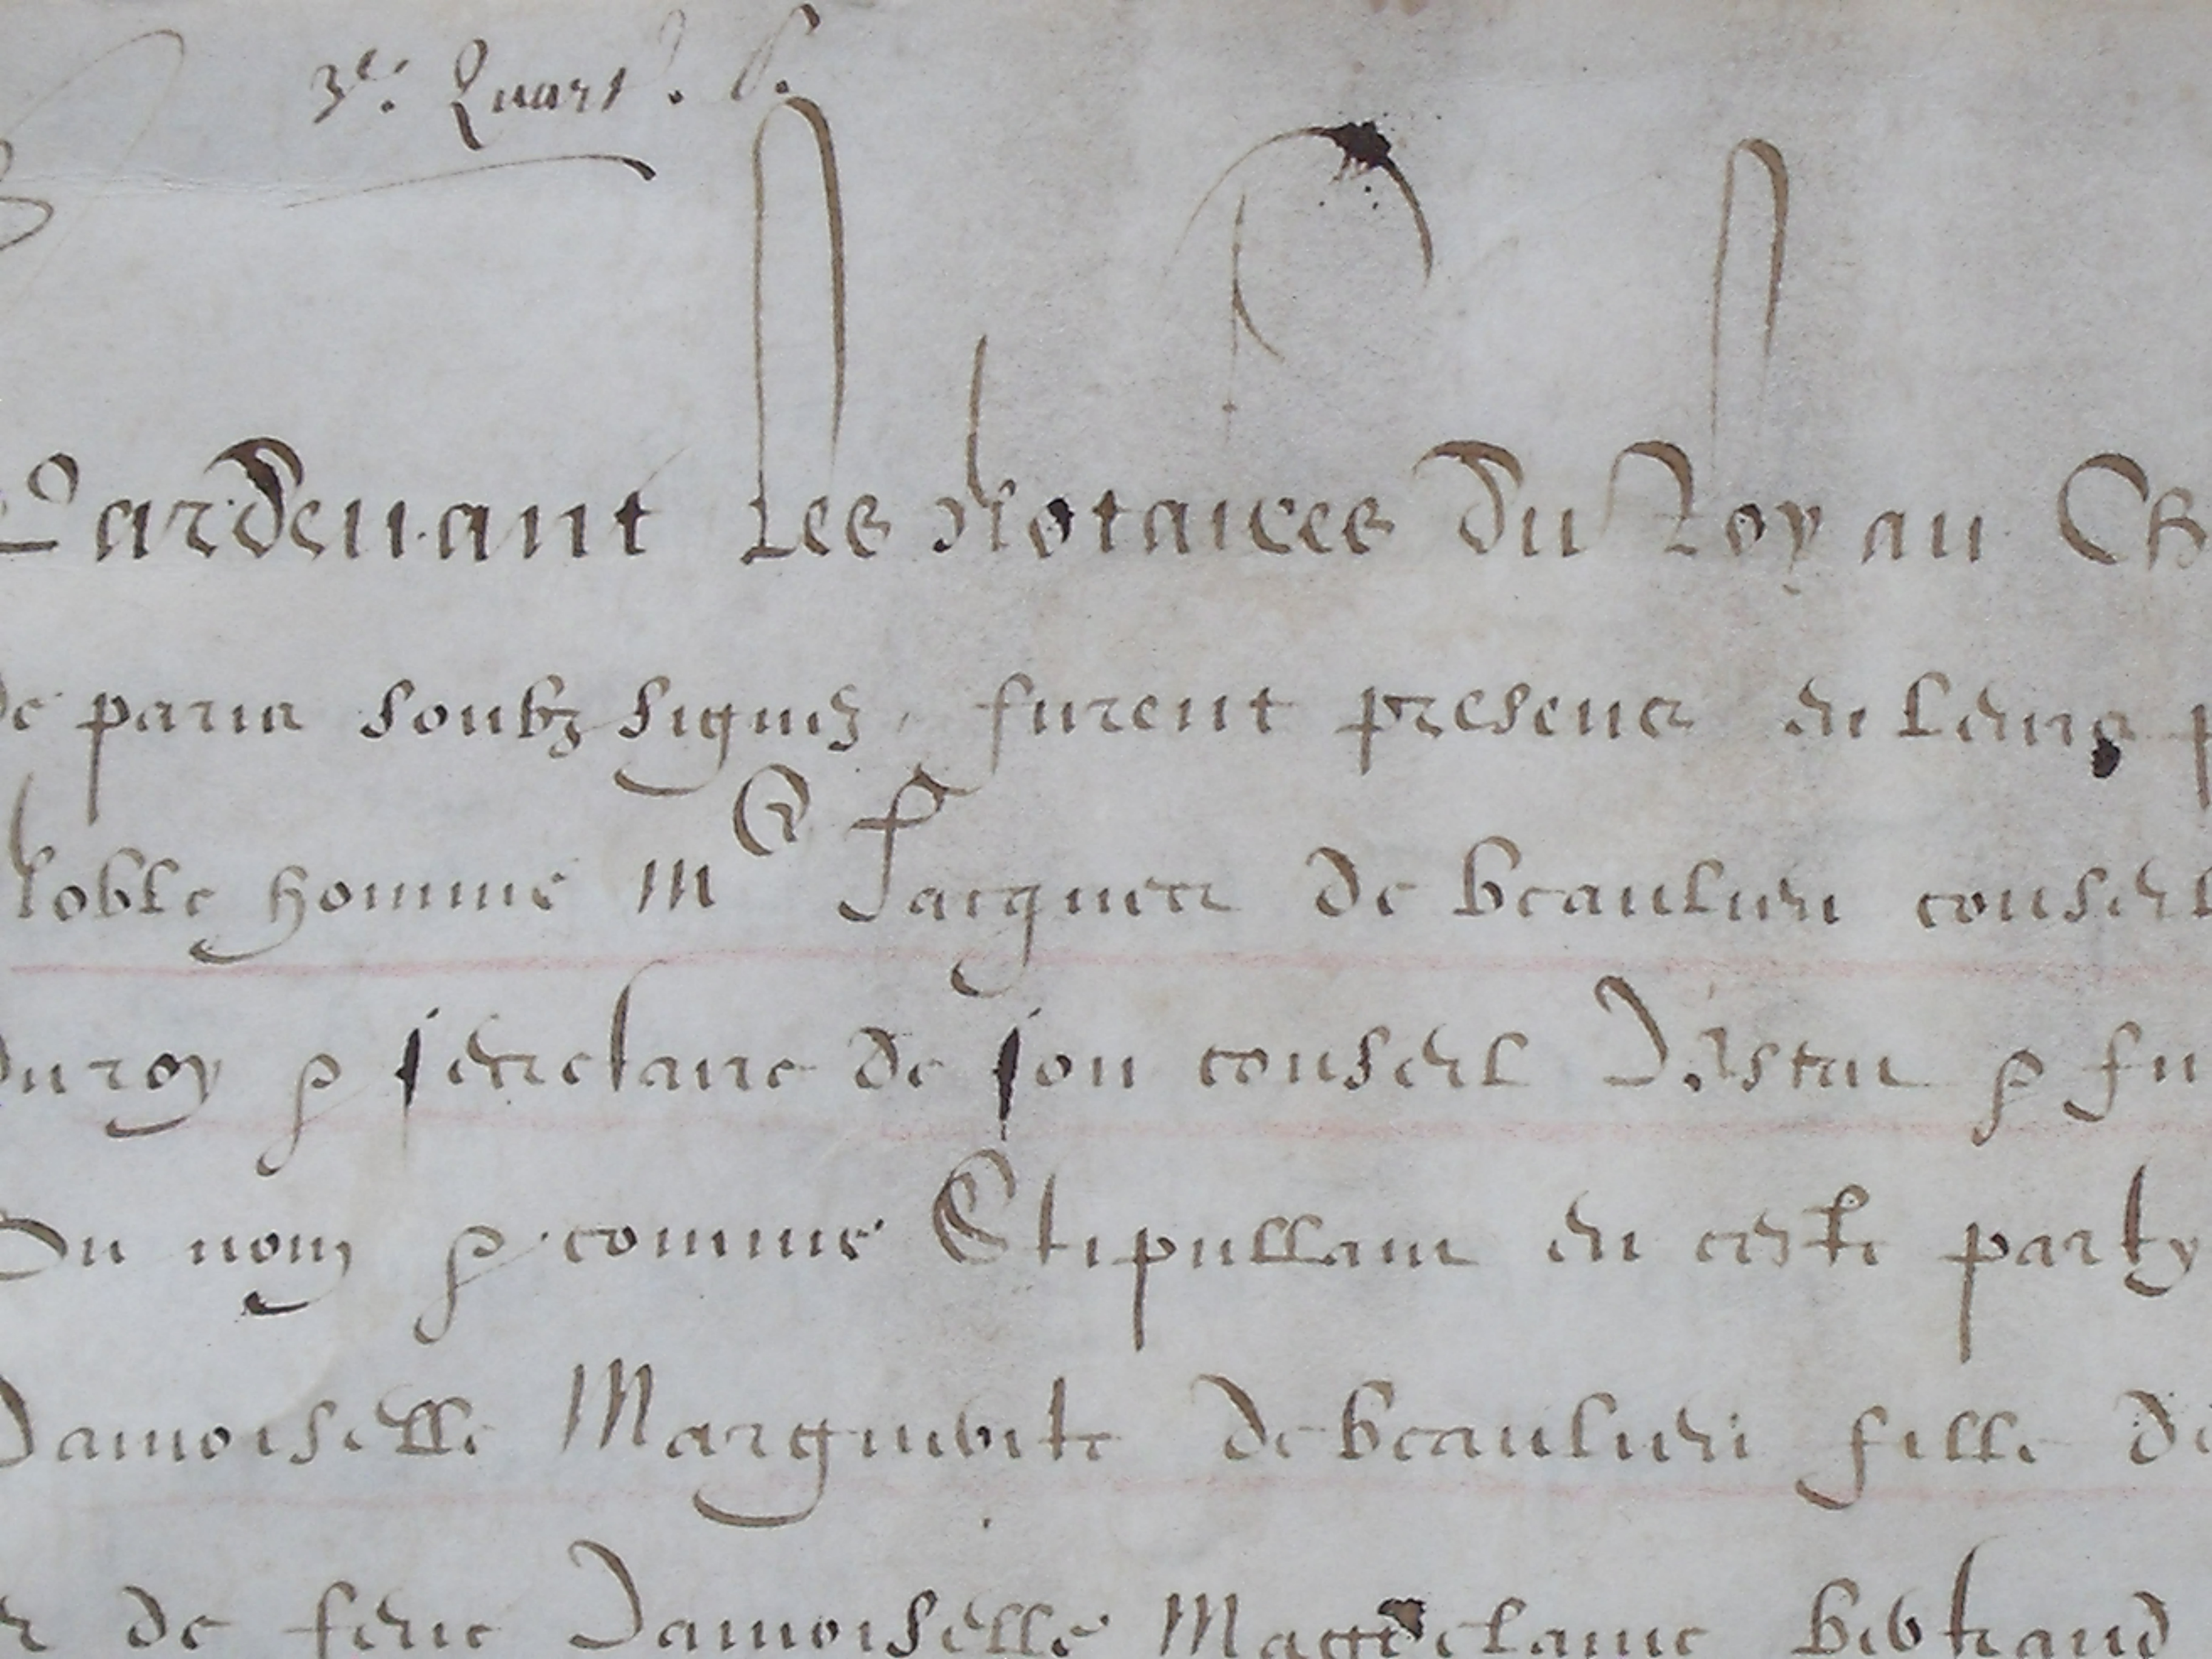 3e. Quart.
Pardeuant Les Notaires Du Roy au Ch
de paris soubz signez, furent presens en leurs p
Noble homme Me Jacques de beaulieu conseil
du roy & secretaire de son conseil d'Estat & fin
Au nom & comme Stipullant en ceste party
Damoiselle Marguerite de beaulieu fille de
& de feue Damoiselle Magdelaine bertrand